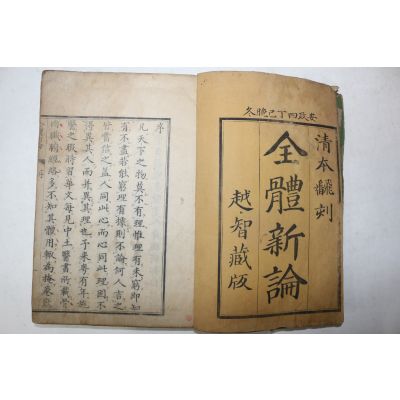 安政四丁巳晩冬
清本翻刻
全體新論
越智藏版
序
凡天下之物莫不有理惟理有未窮卽知
有不盡若能窮理有據則不論何人言之
皆當信之蓋人同此心而心同此理固不
得異其人而并異其理也予來粤有年施
醫之暇時習華文每見中土醫書所載骨
肉臟腑經絡多不知其體用輒為掩卷歎